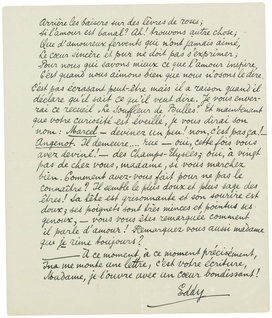 Arrière les baisers sur des lèvres de roses,
Si l'amour est banal! Ah! trouvons autre chose;
Que d'amoureux fervents qui n'ont jamais aimé,
Le cœur sincère et pur ne doit pas s'exprimer,
Pour nous qui savons mieux ce que l'amour inspire,
C'est quand nous aimons bien que nous n'osons le dire.
C'est pas écrasant peut-être mais il a raison quand il
déclare qu'il sait ce qu'il veut dire. Je vous enver-
rai ce recueil "Le Souffleur de Bulles". Et maintenant
que votre curiosité est éveillé, je vous dirai son
nom: Marcel — devinez un peu! non, c'est pas ça! —
Angenot. Il demeure.... rue — oui, cette fois vous
avez deviné! — des Champs-Elysées; oui, à vingt
pas de chez vous, madame, si vous marchez
bien. Comment avez-vous fait pour ne pas le
connaître? Il semble le plus doux et plus sage des
êtres! Sa tête est grisonnante et son sourire est
doux; ses poignets sont très minces et pointus ses
genoux, — vous vous êtes remarquée comment
il parle d'amour! Remarquez vous aussi madame
que je rime toujours?
— À ce moment, à ce moment précisément,
Ina me monte une lettre, c'est votre écriture,
Madame, je l'ouvre avec un cœur bondissant!
Eddy